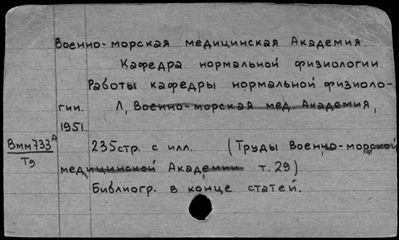 Военно-морская медицинская Академия.
Кафедра нормальной физиологии
Работы кафедры нормальной физиоло-
гии. Л, Военно-морская мед. Академия,
1951.
Вмм733д
Т9
235стр. с илл. (Труды Военно-морской
медицинской Академии т. 29)
Библиогр. в конце статей.